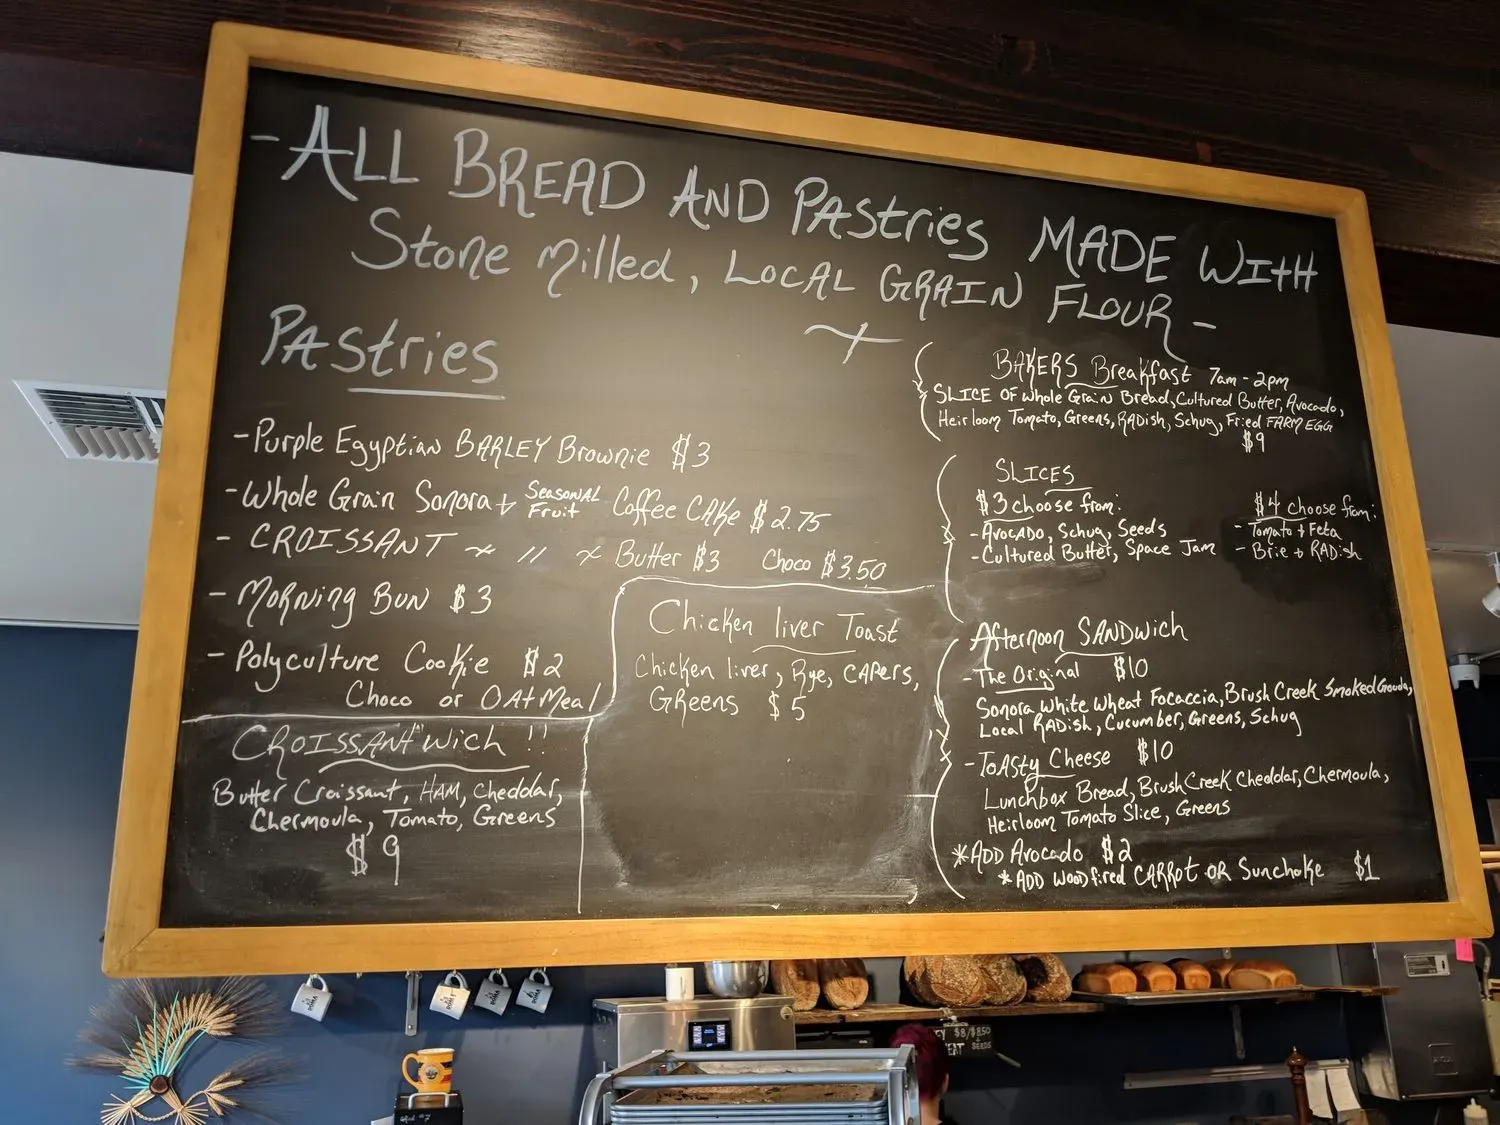 - ALL BREAD AND PAStries MADE WitH
Stone Milled, LOCAL GRAIN FLOUR -
PAStries
- Purple Egyptian BARLEY Brownie $3
- Whole Grain Sonora + SEASONAL Fruit Coffee CAKe $2.75
- CROISSANT ~ // ~ Butter $3 Choco $3.50
- MORNing BUN $3
- Polyculture Cookie $2
Choco or OAtMeal
CROISSANT"wich !!
Butter Croissant, HAM, cheddar,
Chermoula, Tomato, Greens
$9
Chicken liver Toast
Chicken liver, Rye, CAPers,
GReens $5
BAKERS Breakfast 7am - 2pm
SLICE OF Whole Grain Bread, Cultured Butter, Avocado,
Heirloom Tomato, Greens, RADish, Schug, Fried FARM EGG
$9
SLICES
$3 choose from:
- Avocado, Schug, Seeds
- Cultured Butter, Space Jam
$4 choose from:
- Tomato + Feta
- Brie + RADish
Afternoon SANDwich
- The Original $10
Sonora White Wheat Focaccia, Brush Creek Smoked Gouda,
Local RADish, Cucumber, Greens, Schug
- ToAsty Cheese $10
Lunchbox Bread, Brush Creek Cheddar, Chermoula,
Heirloom Tomato Slice, Greens
*ADD Avocado $2
*ADD Woodfired CARROT OR Sunchoke $1
ROMA
ROMA
$8/$8.50
+ SEEDS